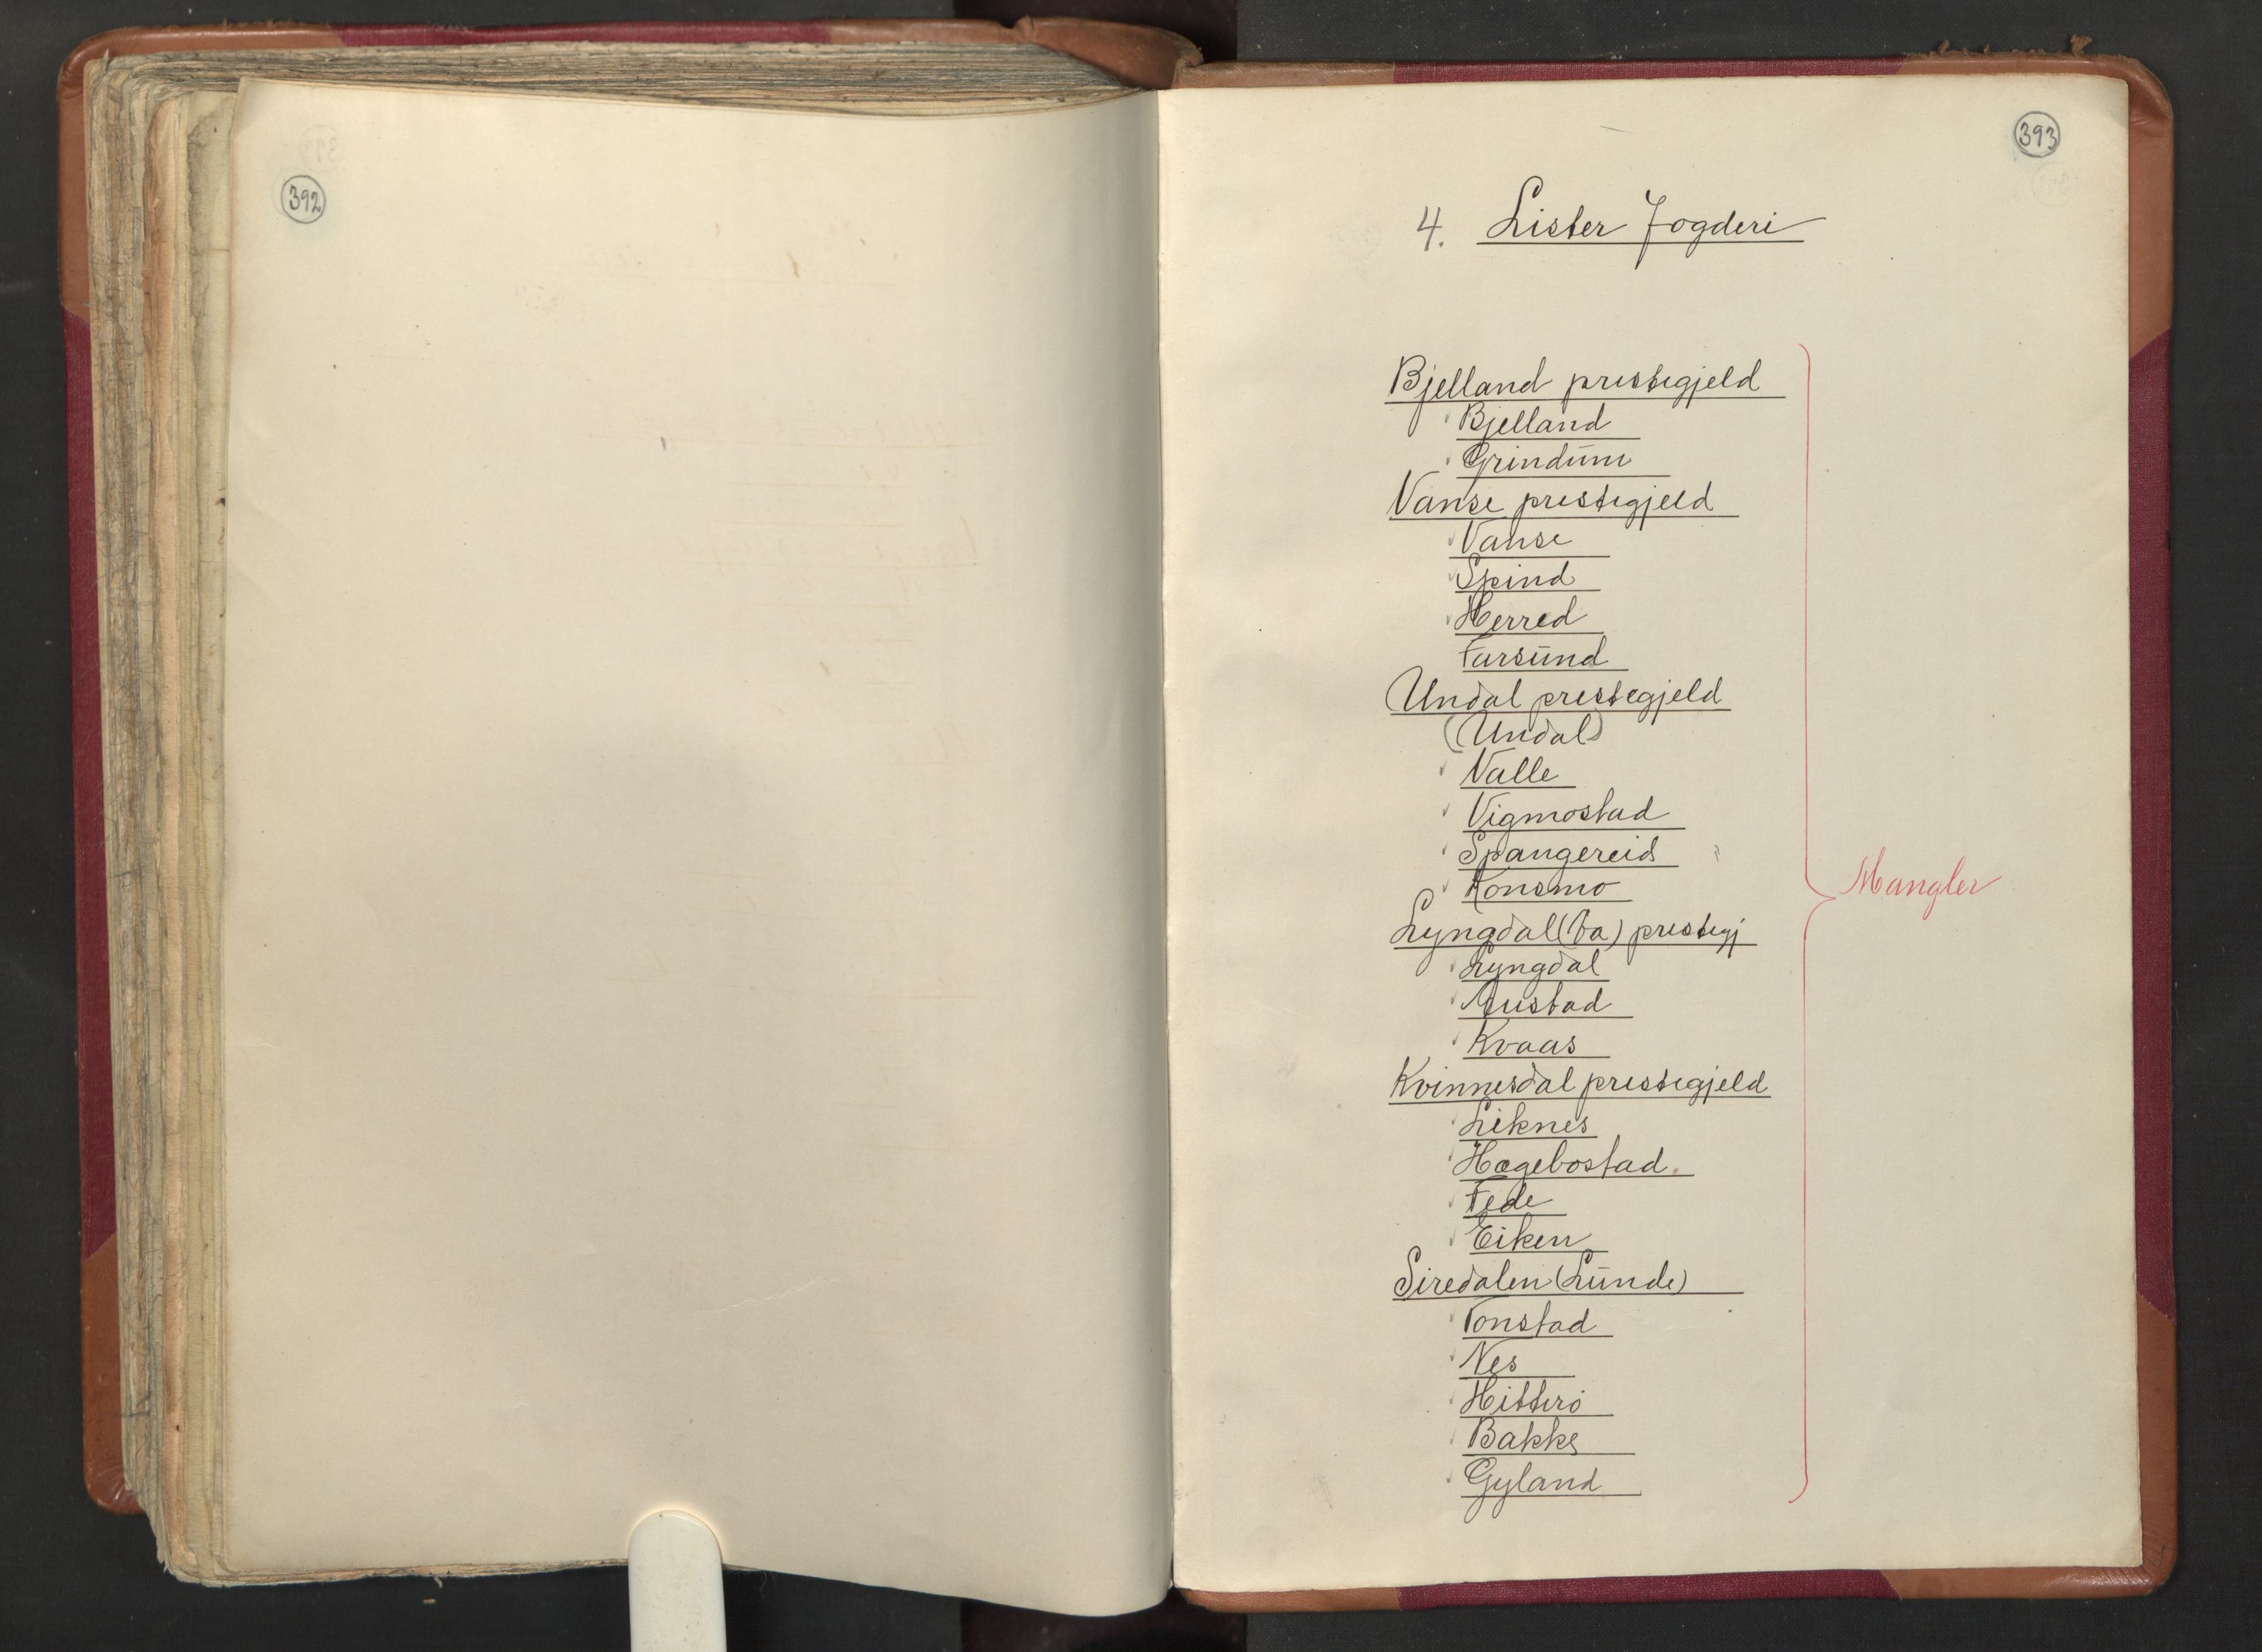 392
393
4. Lister Fogderi
Bjelland prestegjeld
Bjelland
Grindum
Vanse prestegjeld
Vanse
Spind
Herred
Farsund
Undal prestegjeld
(Undal)
Valle
Vigmostad
Spangereid
Konsmo
Lyngdal (Aa) prestegj
Lyngdal
Austad
Kvaas
Kvinnesdal prestegjeld
Liknes
Hægebostad
Fede
Eiken
Siredalen (Lunde)
Tonstad
Nes
Hitterø
Bakke
Gyland
Mangler